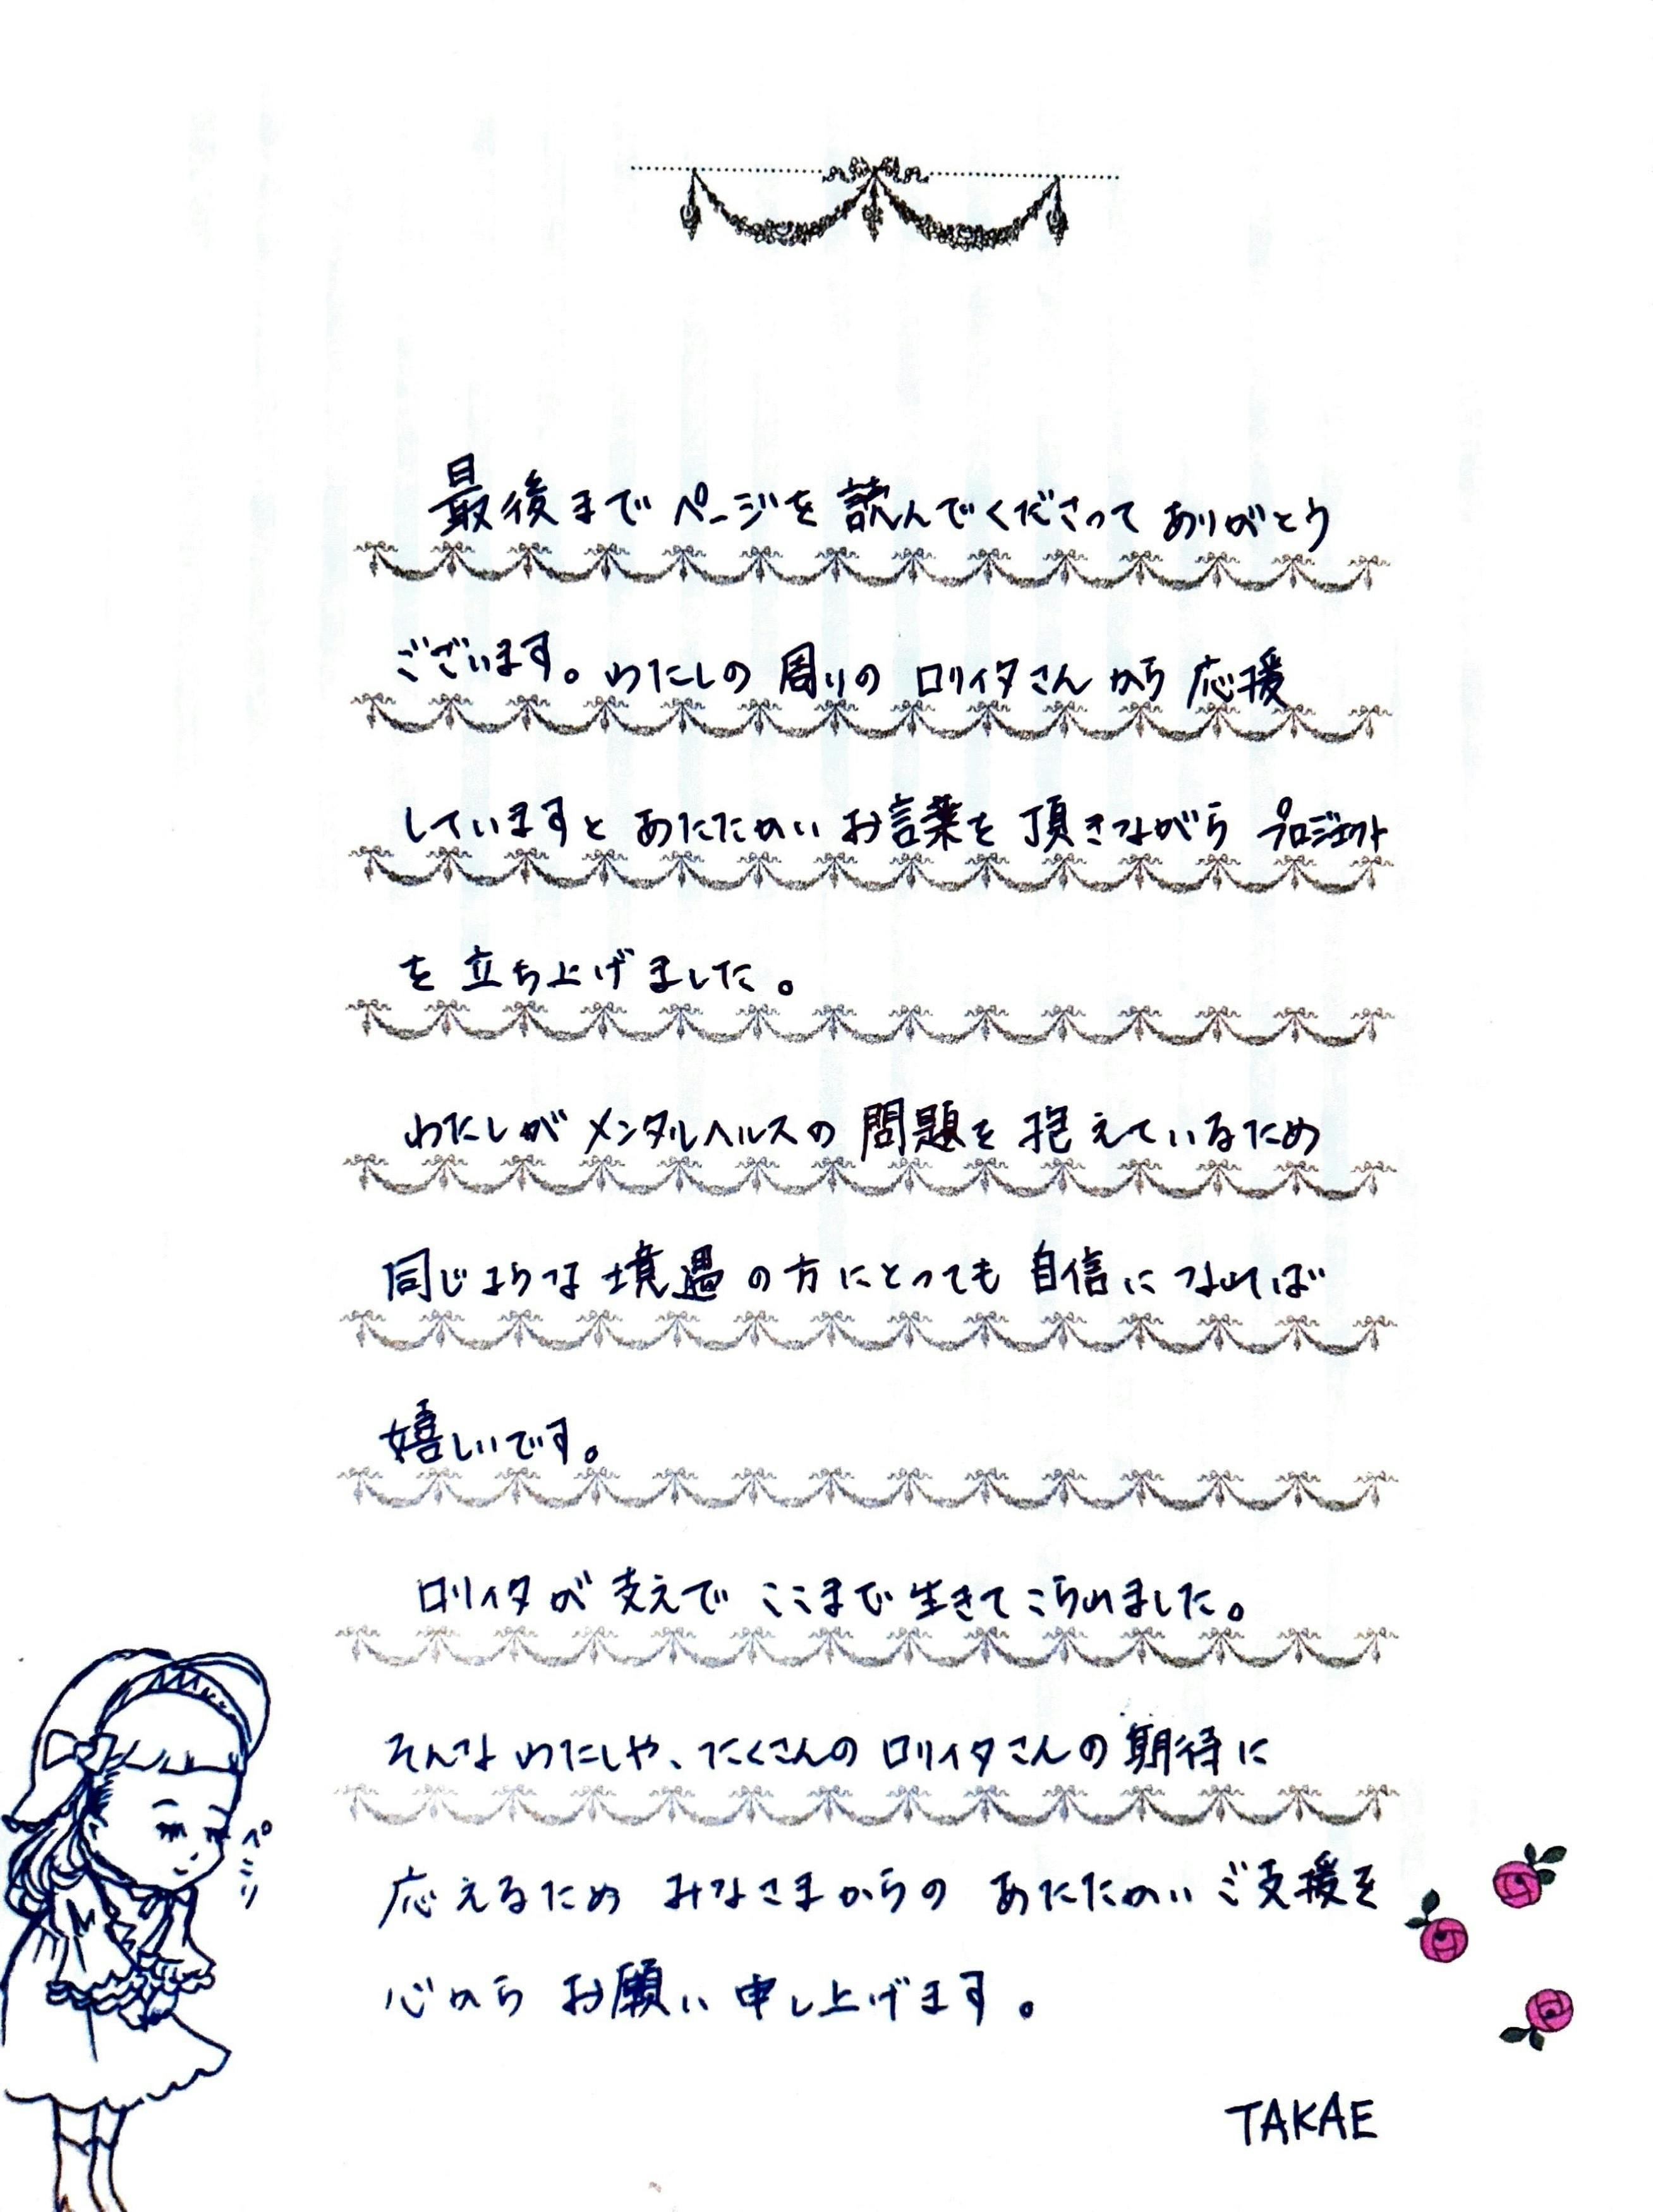 最後までページを読んでくださってありがとう
ございます。わたしの周りのロリィタさんから応援
していますとあたたかいお言葉を頂きながらプロジェクト
を立ち上げました。
わたしがメンタルヘルスの問題を抱えているため
同じような境遇の方にとっても自信になれば
嬉しいです。
ロリィタが支えでここまで生きてこられました。
そんなわたしや、たくさんのロリィタさんの期待に
応えるためみなさまからのあたたかいご支援を
心からお願い申し上げます。
ペコリ
TAKAE